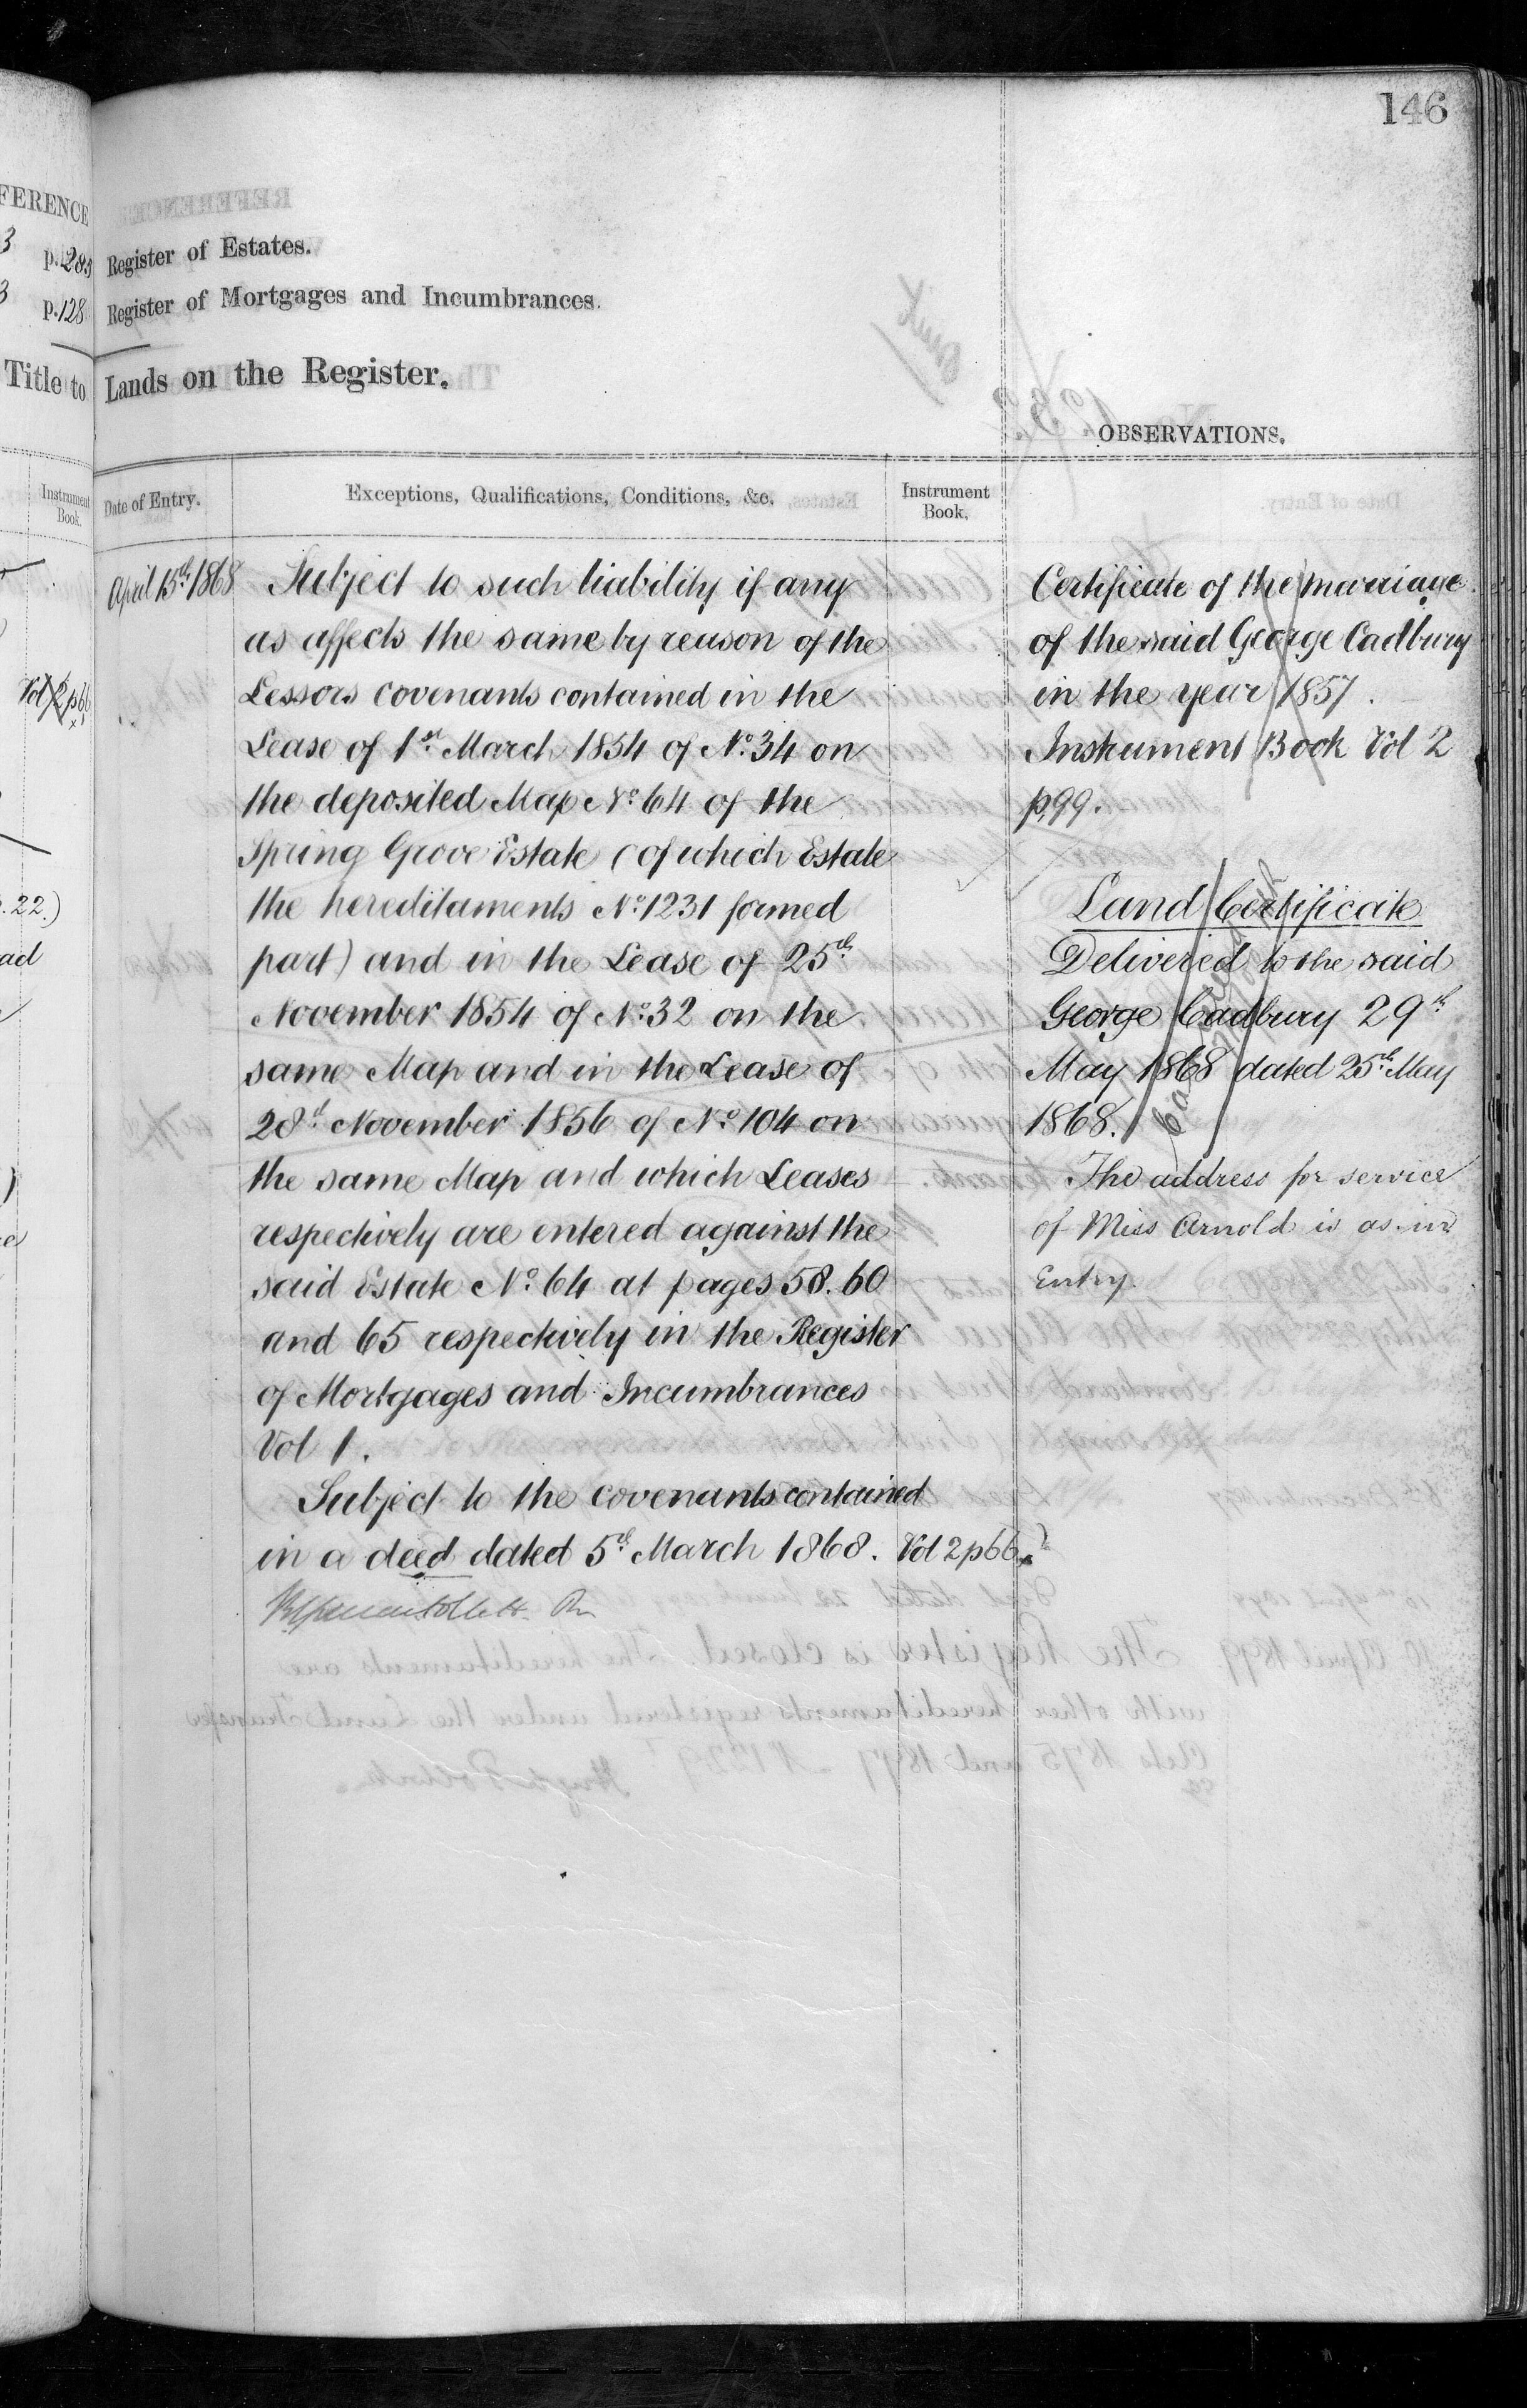 146
FERENCE
3 p.283 Register of Estates.
3 p.128 Register of Mortgages and Incumbrances.
Title to Lands on the Register.
OBSERVATIONS.
Instrument Book.
Date of Entry.
Exceptions, Qualifications, Conditions, &c.
Instrument Book.
Vol 2 p66
.22.)
April 15th 1868
Subject to such liability if any
as affects the same by reason of the
Lessors covenants contained in the
Lease of 1st March 1854 of No. 34 on
the deposited Map No. 64 of the
Spring Grove Estate (of which Estate
the hereditaments No. 1231 formed
part) and in the Lease of 25th
November 1854 of No. 32 on the
same Map and in the Lease of
28th November 1856 of No. 104 on
the same Map and which Leases
respectively are entered against the
said Estate No. 64 at pages 58. 60
and 65 respectively in the Register
of Mortgages and Incumbrances
Vol 1.
Subject to the covenants contained
in a deed dated 5th March 1868. Vol 2 p66
Certificate of the marriage
of the said George Cadbury
in the year 1857.
Instrument Book Vol 2
p99.
Land Certificate
Delivered to the said
George Cadbury 29th
May 1868 dated 25th May
1868.
The address for service
of Miss Arnold is as in
Entry.